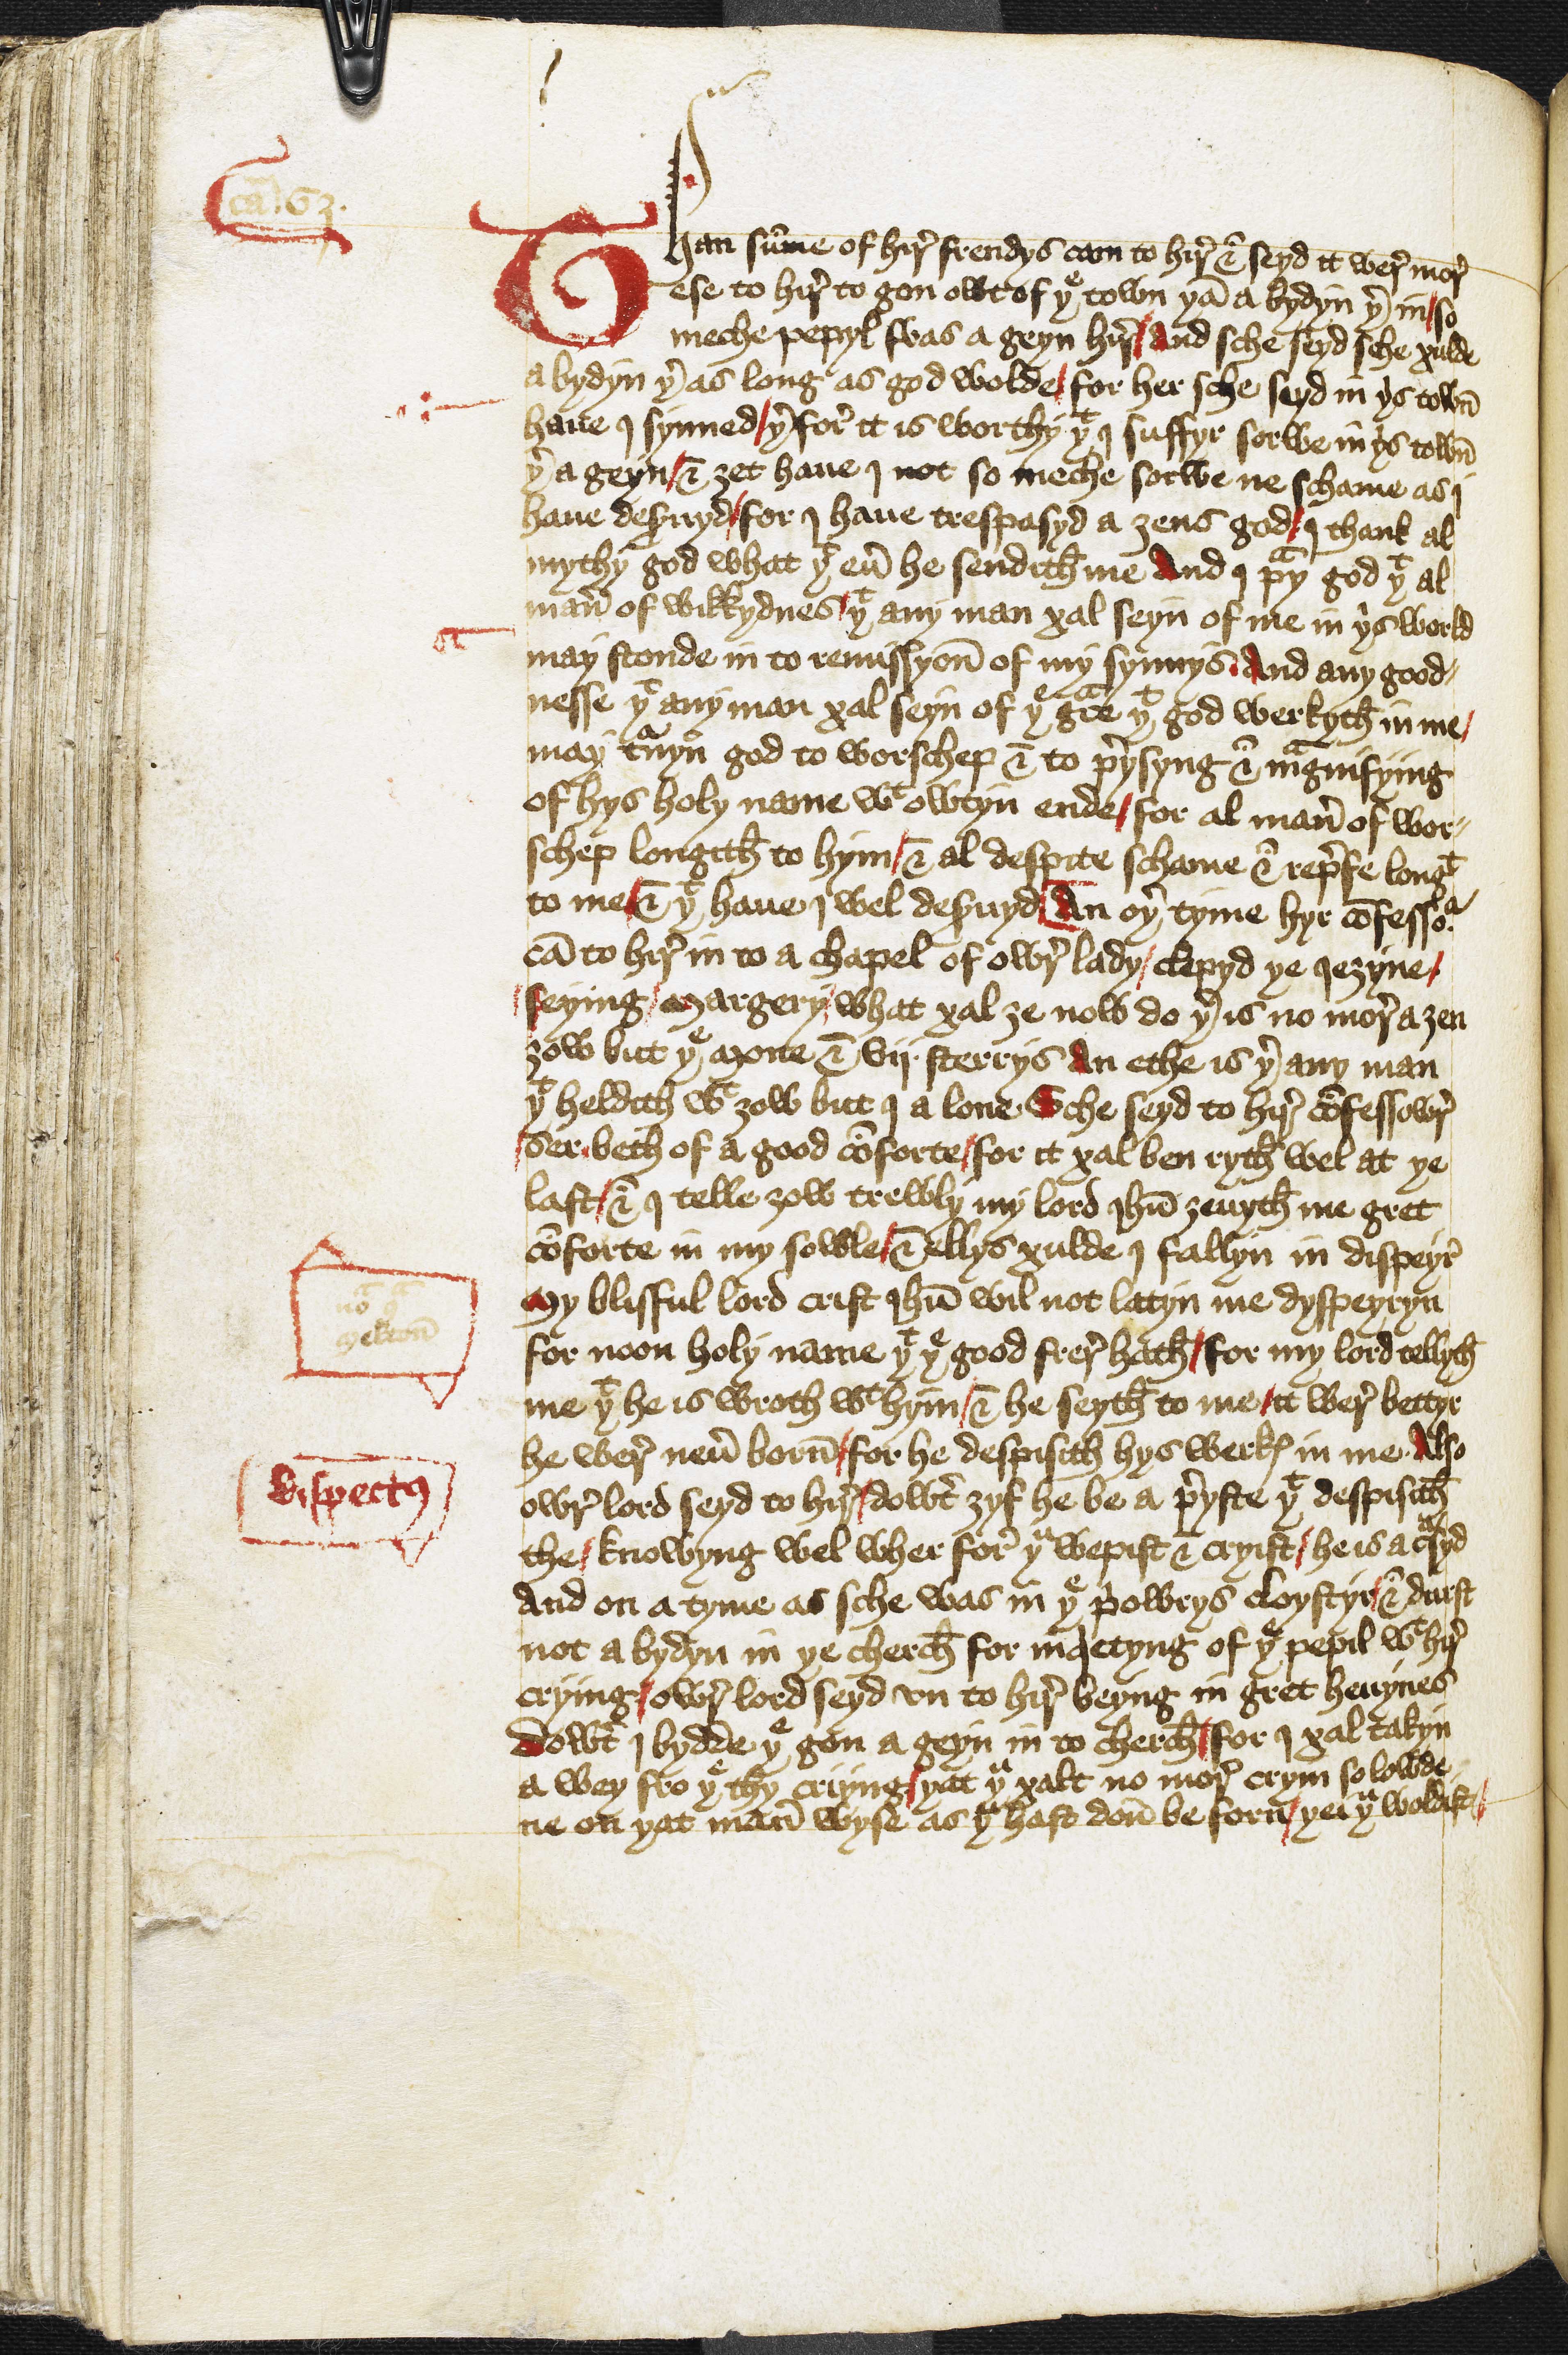 ca. 63.
Than sūme of hir frendys cam to hir & seyd it wer mor
ese to hir to gon owt of yᵉ town yā a bydyn yʳ in / so
meche pepyl was a geyn hir / And sche seyd sche xulde
a bydyn yʳ as long as god wolde / for her sche seyd in yⁱs town̄
haue I synned / yʳfor it is worthy yᵗ I suffyr sorwe in yⁱs town̄
yʳ a geyn / & ȝet haue I not so meche sorwe ne schame as I
haue deseruyd / for I haue trespasyd a ȝens god / I thank al
mythy god what yᵗ eū he sendith me And I pᵃy god yᵗ al
man̄ of wikkydnes / yᵗ any man xal seyn of me in yⁱs world
may stonde in to remissyon̄ of my synnys. And any good-
nesse yᵗ any man xal seyn of yᵉ gᵃce yᵗ god werkyth in me /
may turnyn god to worschep & to pʳysyng & mᵃgnifying
of hys holy name wᵗ owtyn ende / for al man̄ of wor-
schep longith to hym / & al despite schame & repʳfe longᵗ
to me / & yᵗ haue I wel deseruyd An oyʳ tyme hyr cōfessoᵃ
cā to hir in to a chapel of owr lady / clepyd ye Iezyne /
seying / Margery / what xal ȝe now do yʳ is no mor a ȝen
ȝow but yᵉ mone & vij sterrys An ethe is yʳ any man
yᵗ heldith wᵗ ȝow but I a lone. Sche seyd to hir cōfessowr
Ser. beth of a good cōforte / for it xal ben ryth wel at ye
last / & I telle ȝow trewly my lord Ihū ȝeuyth me gret
cōforte in my sowle / & ellys xulde I fallyn in dispeyr
My blisful lord crist Ihū wil not latyn me dyspeyryn
for noon holy name yᵗ yᵉ good frer hath / for my lord tellyth
me yᵗ he is wroth wᵗ hym / & he seyth to me / it wer bettyr
he wer neū born̄ / for he despisith hys werkꝭ in me. Also
owr lord seyd to hir / dowtʳ ȝyf he be a pʳyste yᵗ despisith
the / knowyng wel wher for yᵘ wepist & cryist / he is a cursyd
And on a tyme as sche was in yᵉ pⁱowrys cloystyr / & durst
not a bydyn in ye cherch for inqietyng of yᵉ pepil wᵗ hir
crying / owr lord seyd vn to hir beyng in gret heuynes
Dowtʳ I bydde yᵉ gon a geyn in to cherch / for I xal takyn
a wey fro yᵉ thy criyng / yat yᵘ xalt no mor cryin so lowde
ne on yat man̄ wyse as yᵘ hast don̄ be forn / yei yᵘ woldist /
noᵗᵃ
Melton̄
Dispectus